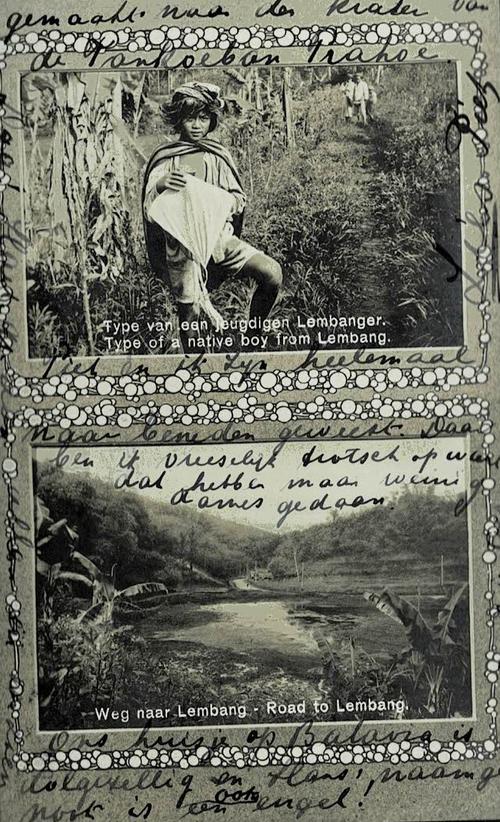 gemaakt naar de krater van
de Tankoeban Prahoe
Type van een jeugdigen Lembanger.
Type of a native boy from Lembang.
Piet en ik zijn heelemaal
naar beneden geweest. Daar
ben ik vreeselijk trotsch op want
dat hebben maar weinig
dames gedaan.
Weg naar Lembang - Road to Lembang.
Ons huisje op Batavia is
dolgezellig en Hans' naamge
noot is ook een engel!